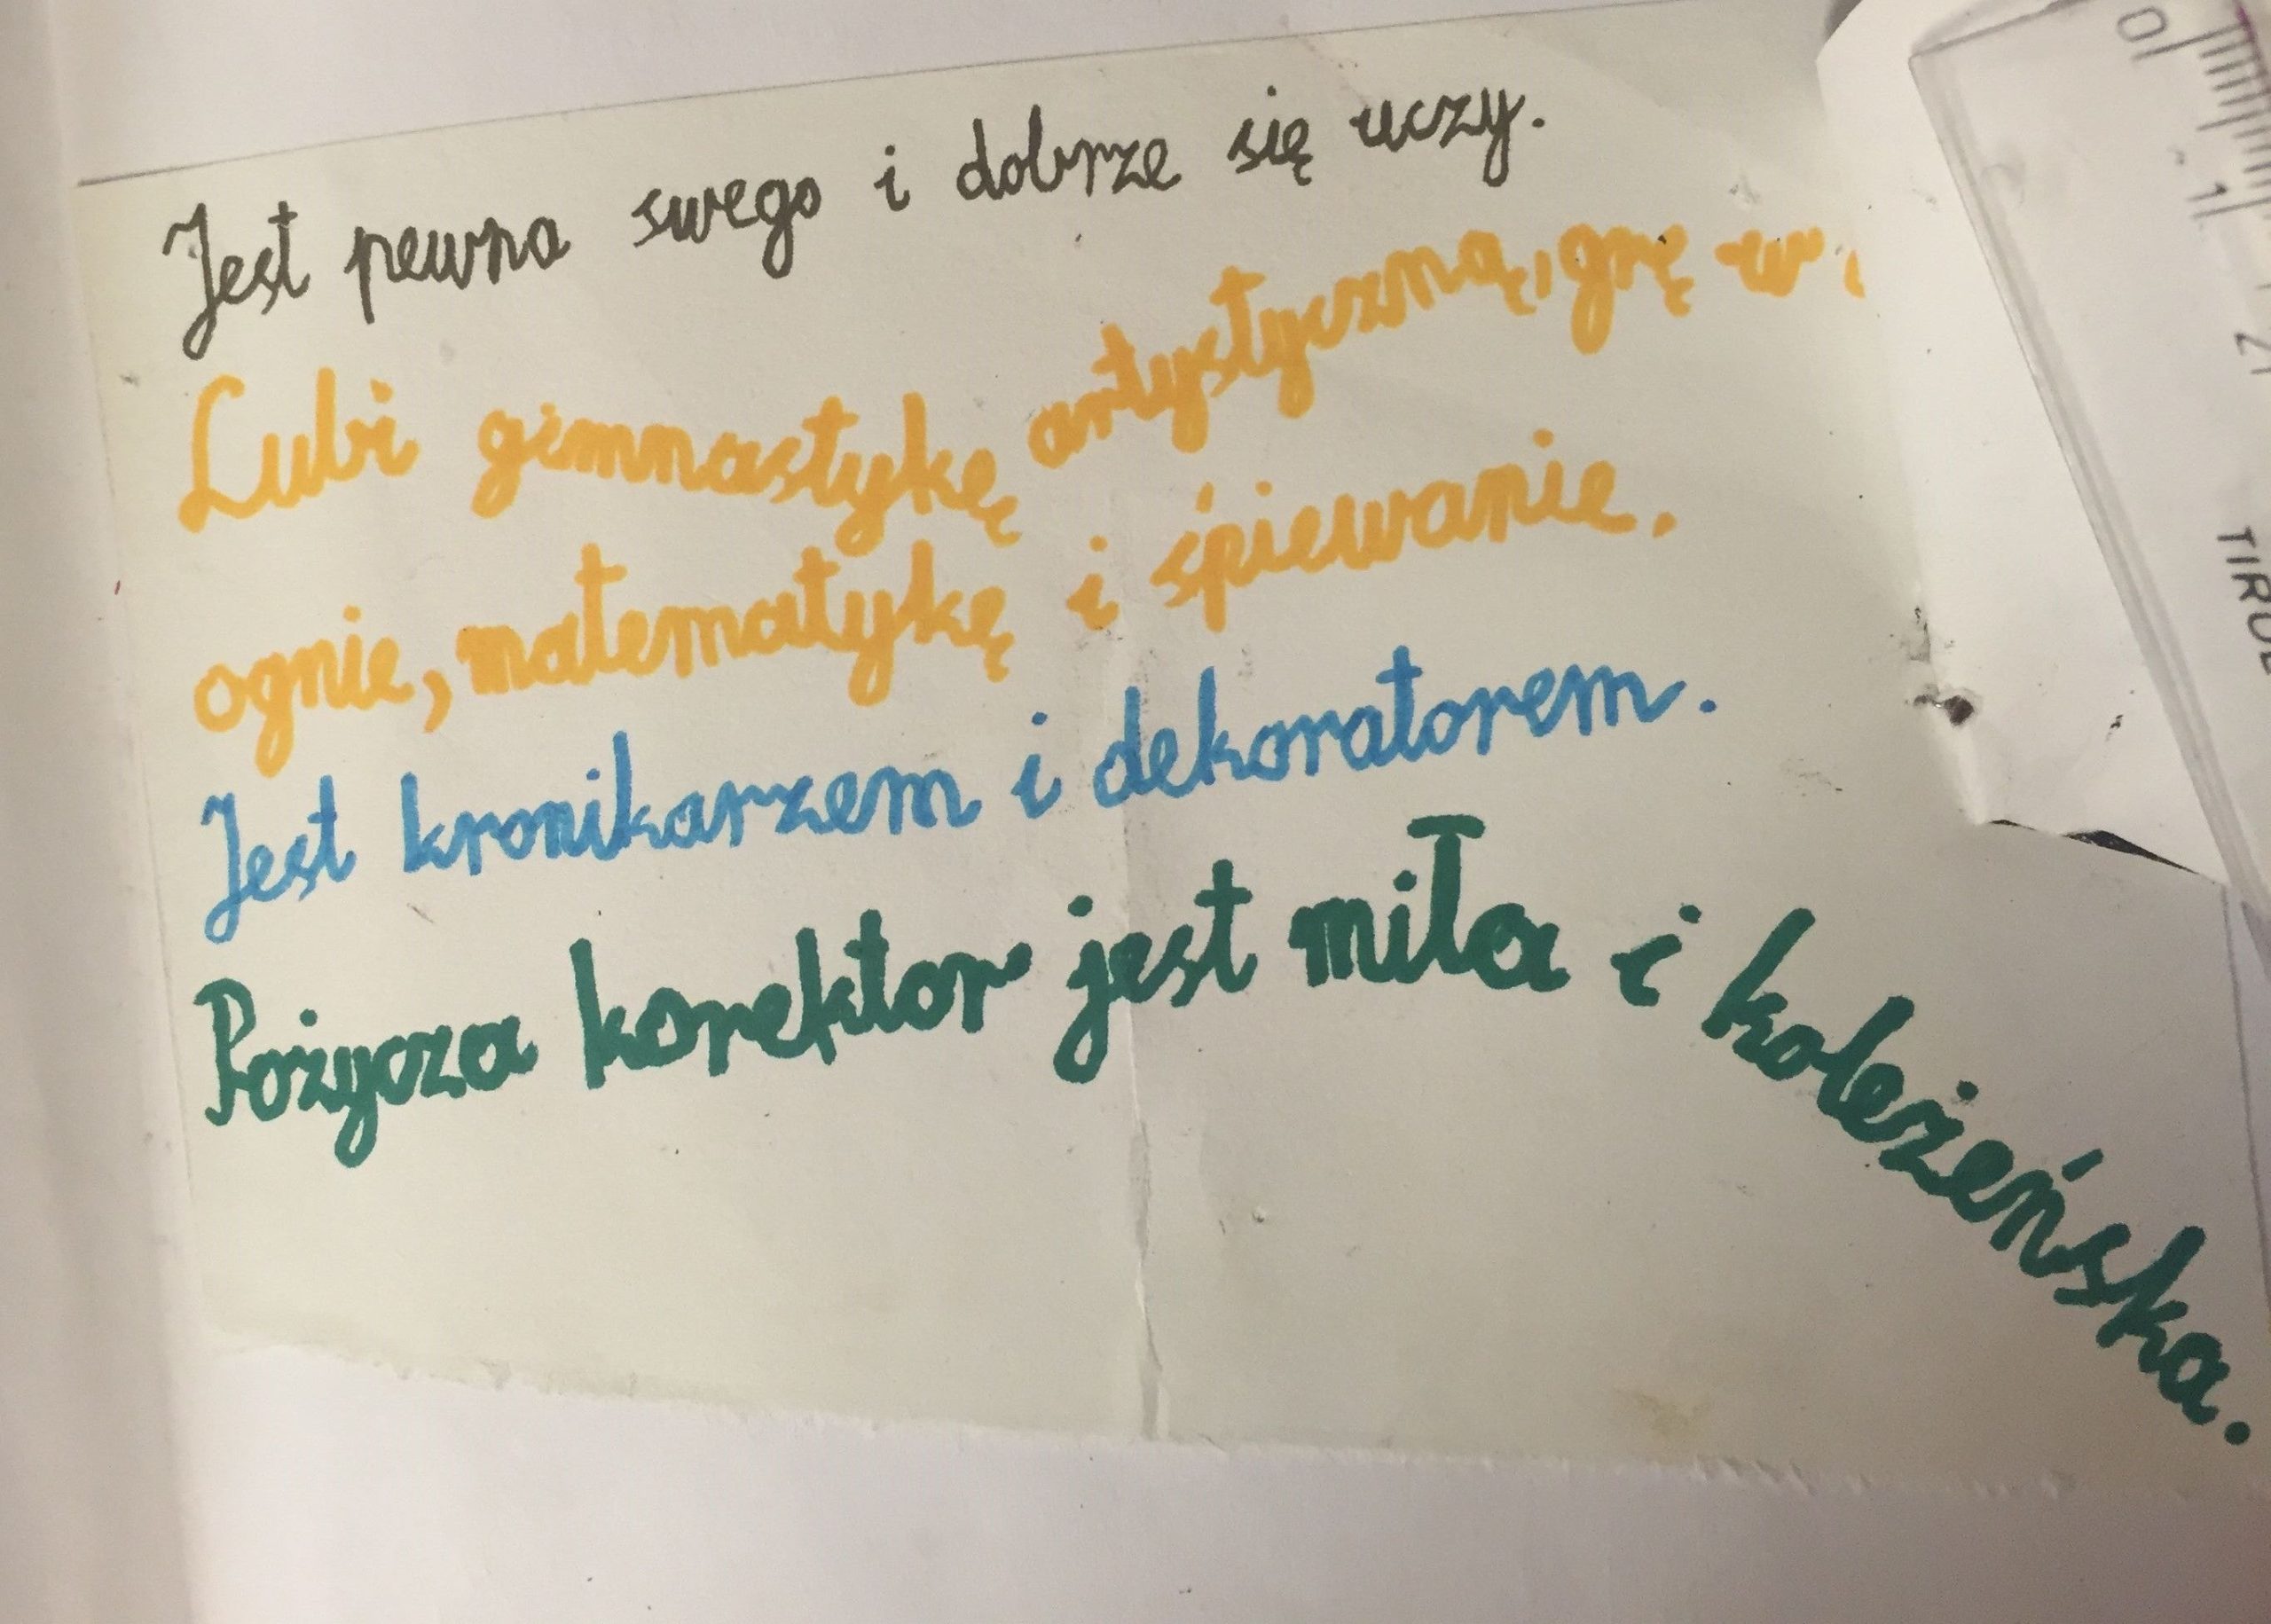 Jest pewna swego i dobrze się uczy.
Lubi gimnastykę artystyczną, grę w
ognie, matematykę i śpiewanie.
Jest kronikarzem i dekoratorem.
Pożycza korektor jest miła i koleżeńska.
0
1